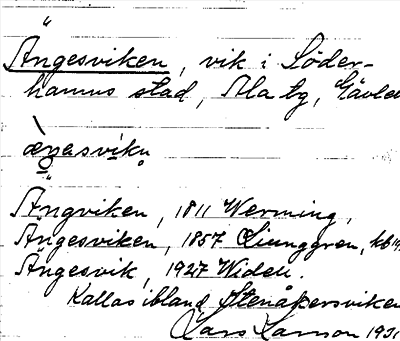 Ängesviken, vik i Söder-
hamns stad, Ala by, Gävleb
Ängviken, 1811 Werming,
Ängesviken, 1857 Ljunggren,
Ängesvik, 1927 Widén.
Kallas ibland Stenåkersviken
Lars Larsson 193